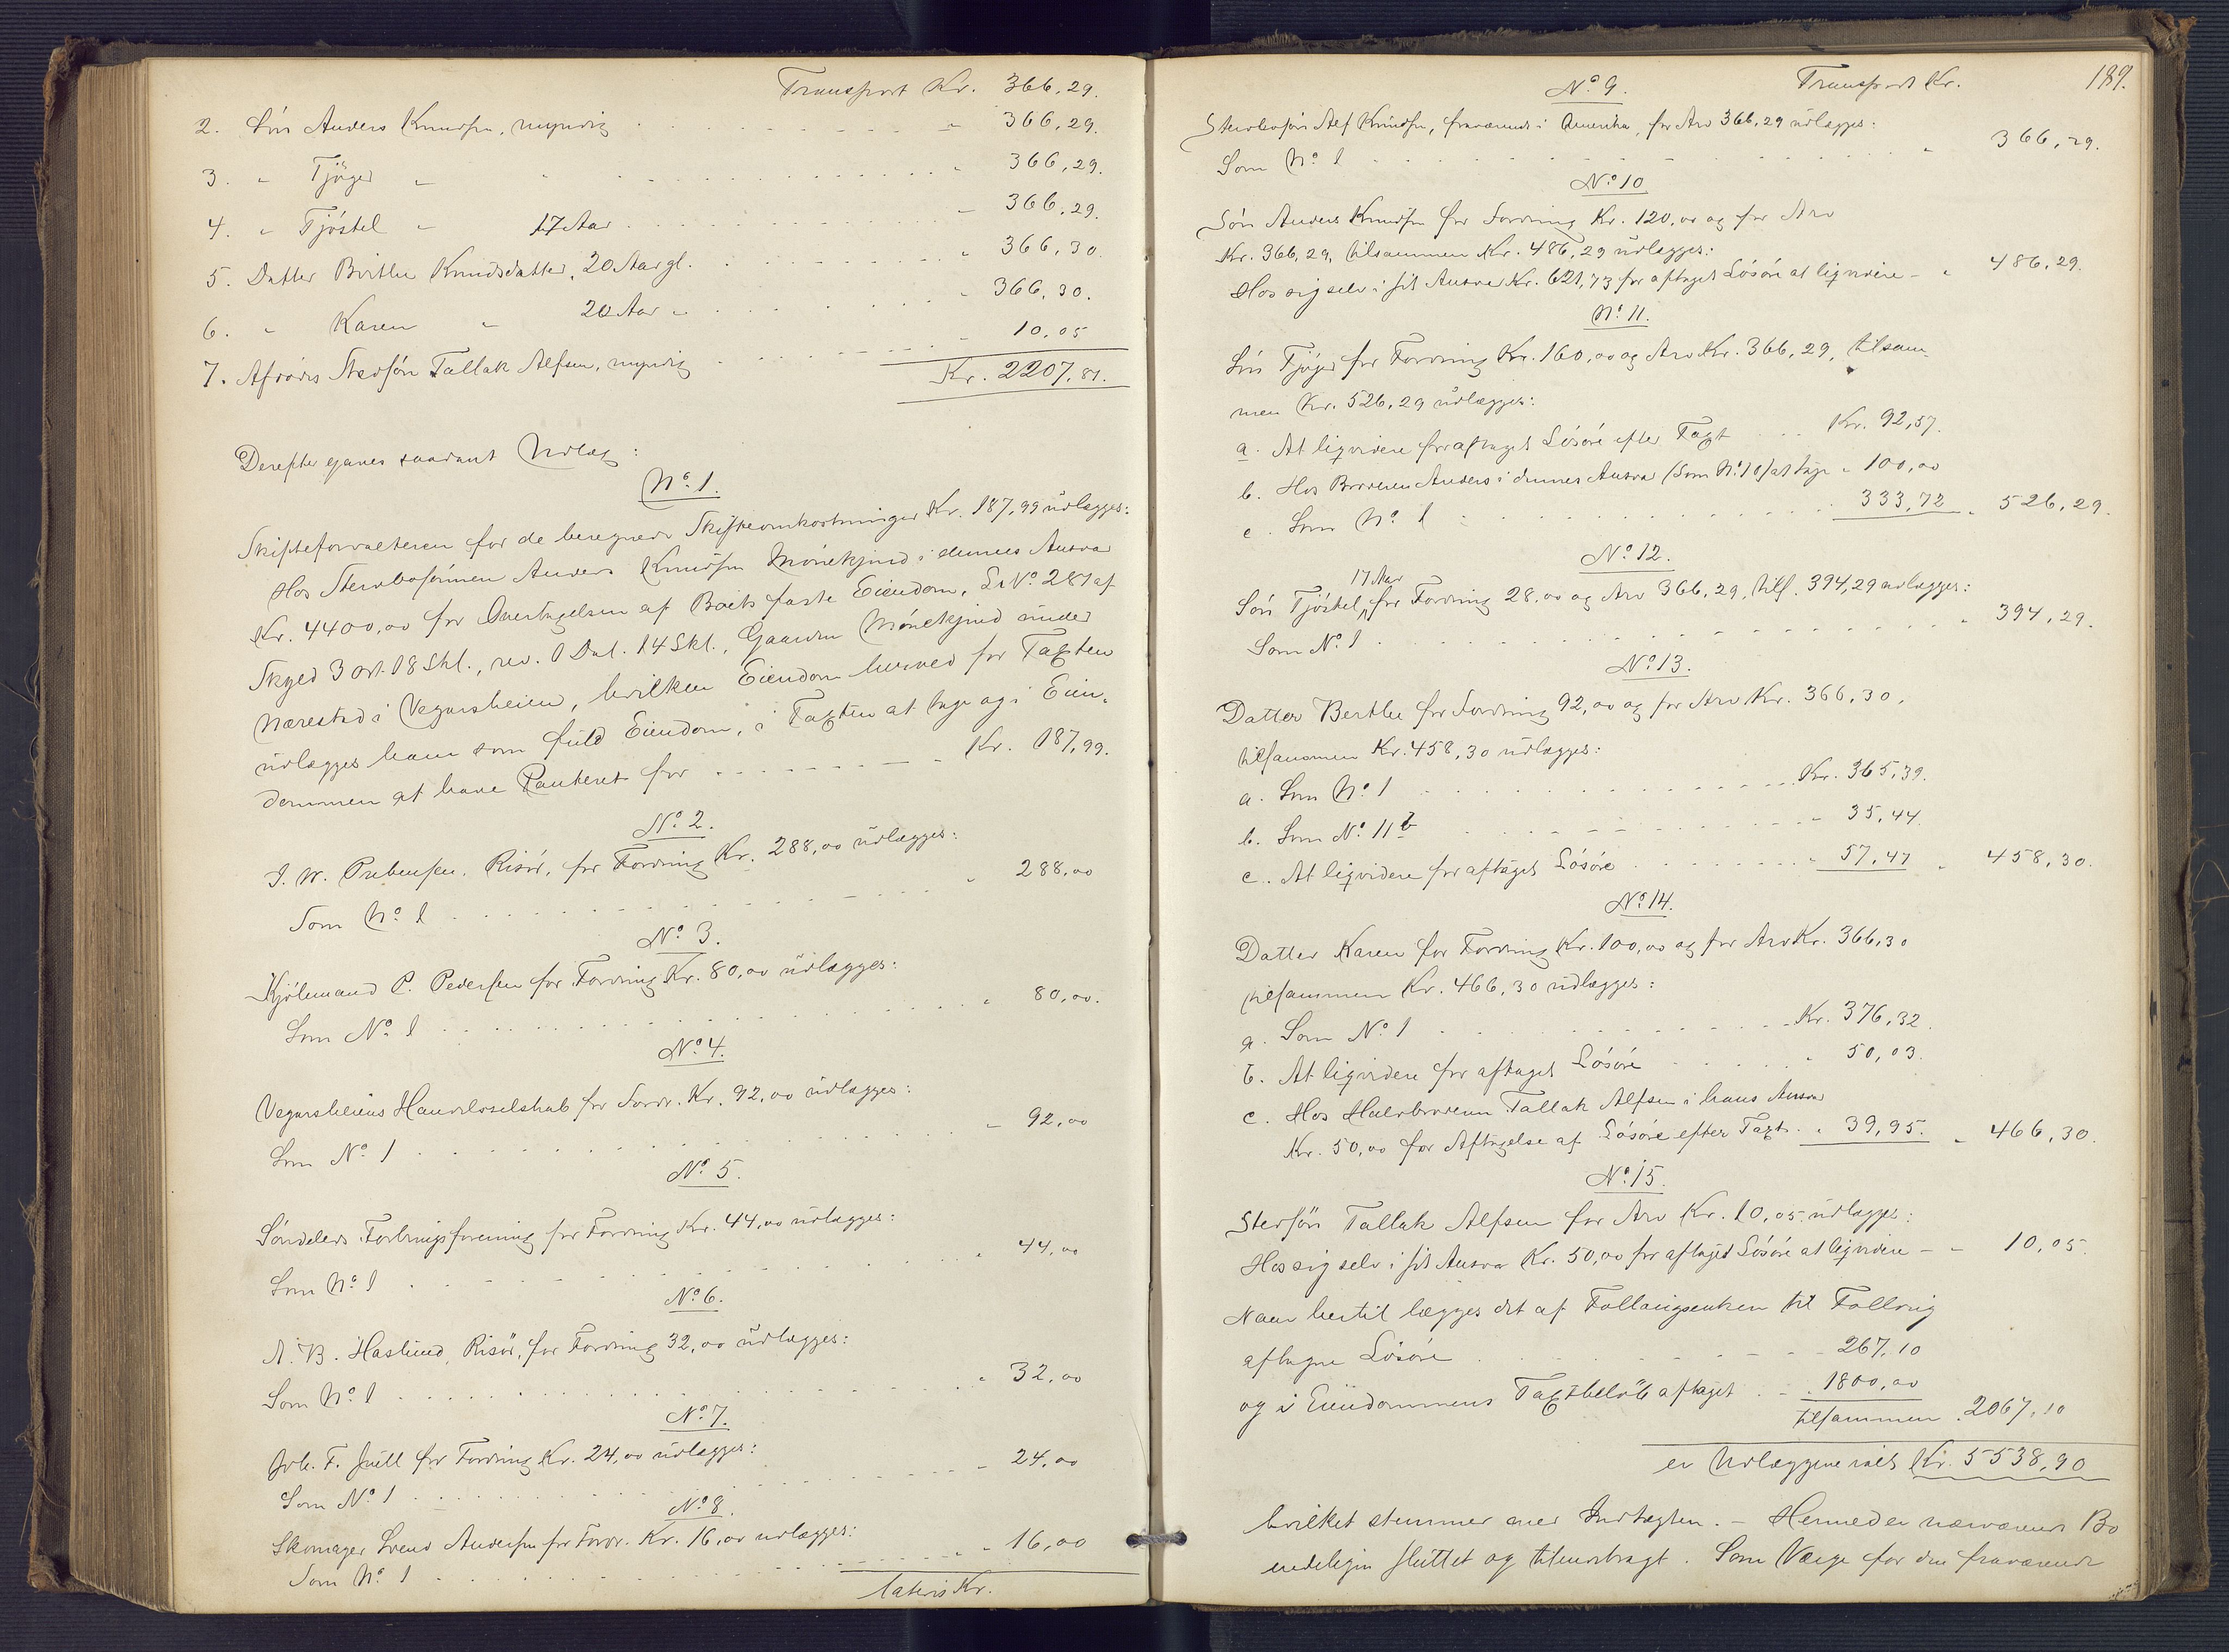 Transport Kr. 366,29.
2. Søn Anders Knudsen, myndig - 366,29.
3. " Tjøger " " - 366,29.
4. " Tjøstel " 17 Aar - 366,29.
5. Datter Birthe Knudsdatter, 20 Aar gl. " 366,30.
6. " Karen " 20 Aar " " 366,30.
7. Afdødes Stedsøn Tallak Alfsen, myndig - 10,05
Kr. 2207,81.
Derefter gjøres saadant Udlæg:
No. 1.
Skifteforvalteren for de beregnede Skifteomkostninger Kr. 187,99 udlægges:
Hos Stervbosønnen Anders Knudsen Mönekjend i dennes Ansvar
Kr. 4400,00 for Overtagelsen af Boets faste Eiendom, LNo. 281 af
Skyld 3 ort 18 Skl., rev. 1 Dal. 14 Skl., Gaarden Mönekjend under
Nærestad i Vegarsheien, hvilken Eiendom herved for Taxten
udlægges ham som fuld Eiendom, i Taxten at tage og i Eien-
dommen at have Panteret for - Kr. 187,99.
No. 2.
J. W. Prebensen, Risør, for Fordring Kr. 288,00 udlægges:
Som No. 1 " 288,00
No. 3.
Kjøbmand P. Pedersen for Fordring Kr. 80,00 udlægges:
Som No. 1 " 80,00.
No. 4.
Vegarsheiens Handelsselskab for Fordr. Kr. 92,00 udlægges:
Som No. 1 - 92,00
No. 5.
Søndeleds Forbrugsforening for Fordring Kr. 44,00 udlægges:
Som No. 1 " 44,00
No. 6.
A. B. Haslund, Risør, for Fordring 32,00 udlægges:
Som No. 1 " 32,00
No. 7.
Joh. F. Juell for Fordring Kr. 24,00 udlægges:
Som No. 1 - 24,00
No. 8.
Skomager Svend Andersen for Fordr. Kr. 16,00 udlægges:
Som No. 1 - 16,00
lateris Kr.
189.
No. 9. Transport Kr.
Stervbosøn Alf Knudsen, fraværende i Amerika, for Arv 366,29 udlægges:
Som No. 1 " 366,29.
No. 10
Søn Anders Knudsen for Fordring Kr. 120,00 og for Arv
Kr. 366,29, tilsammen Kr. 486,29 udlægges:
Hos sig selv i sit Ansvar Kr. 621,73 for aftaget Løsøre at liqvidere - " 486,29.
No. 11.
Søn Tjøger for Fordring Kr. 160,00 og Arv Kr. 366,29, tilsam-
men Kr. 526,29 udlægges:
a. At liqvidere for aftaget Løsøre efter Taxt Kr. 92,57.
b. Hos Broderen Anders i dennes Ansvar (Som No. 10) at tage " 100,00
c. Som No. 1 333,72 " 526,29.
No. 12.
17 Aar
Søn Tjøstel, for Fordring 28,00 og Arv 366,29, tils. 394,29 udlægges:
Som No. 1 " 394,29.
No. 13.
Datter Berthe for Fordring 92,00 og for Arv Kr. 366,30,
tilsammen Kr. 458,30 udlægges:
a. Som No. 1 Kr. 365,39.
b. Som No. 11 b - 35,44.
c. At liqvidere for aftaget Løsøre " 57,47 " 458,30.
No. 14.
Datter Karen for Fordring Kr. 100,00 og for Arv Kr. 366,30
tilsammen Kr. 466,30 udlægges:
a. Som No. 1 Kr. 376,32.
b. At liqvidere for aftaget Løsøre " 50,03.
c. Hos Halvbroderen Tallak Alfsen i hans Ansvar
Kr. 50,00 for Aftagelse af Løsøre efter Taxt " 39,95. " 466,30.
No. 15.
Stedsøn Tallak Alfsen for Arv Kr. 10,05 udlægges:
Hos sig selv i sit Ansvar Kr. 50,00 for aftaget Løsøre at liqvidere - " 10,05.
Naar hertil lægges det af Follaugsenken til Follaug
aftagne Løsøre - 267,10
og i Eiendommens Taxtbeløb aftaget - 1800,00
tilsammen " 2067,10
er Udlæggene ialt Kr. 5538,90
hvilket stemmer med Indtægten. - Hermed er nærværende Bo
endeligen sluttet og tilendebragt. Som Værge for den fraværende